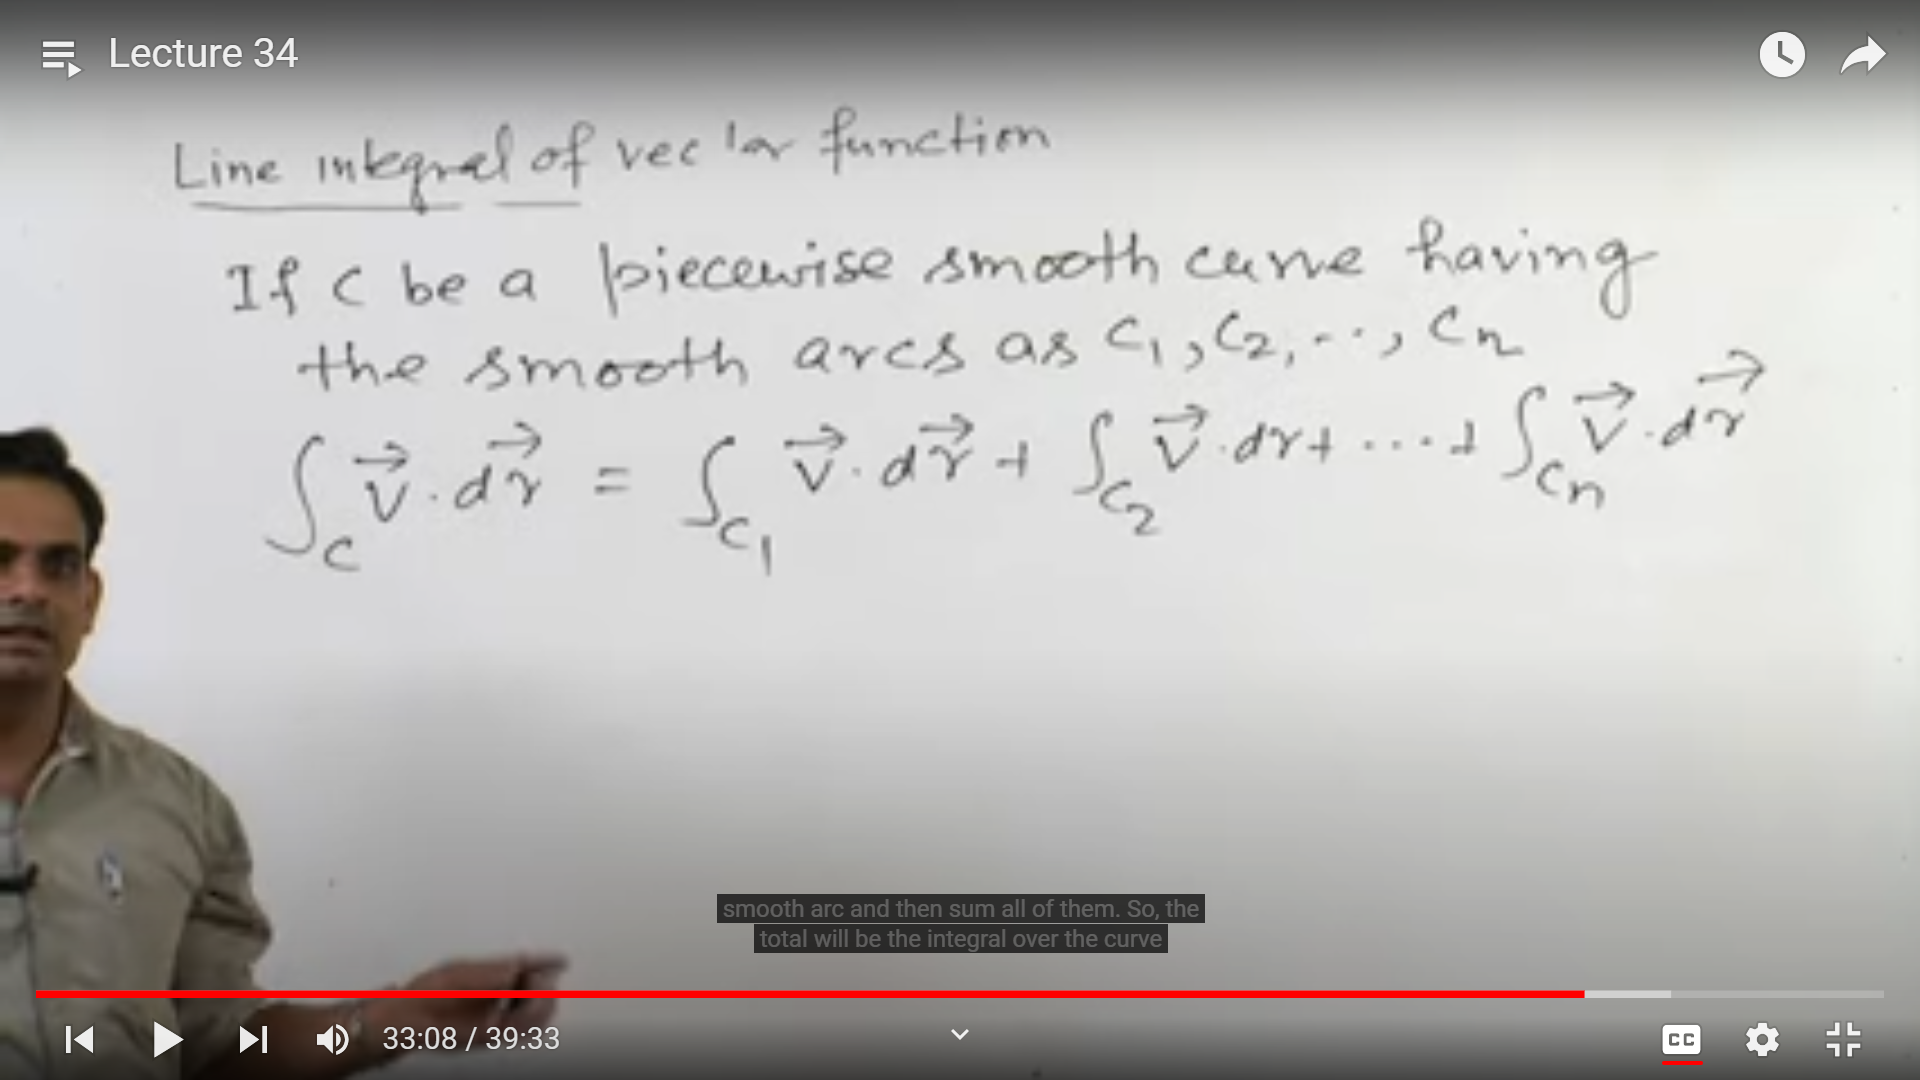 Lecture 34
Line integral of vector function
If C be a piecewise smooth curve having
the smooth arcs as C₁, C₂, ..., Cₙ
∫_C V⃗ · dr⃗ = ∫_C₁ V⃗ · dr⃗ + ∫_C₂ V⃗ · dr + .... + ∫_Cₙ V⃗ · dr⃗
smooth arc and then sum all of them. So, the
total will be the integral over the curve
33:08 / 39:33
CC